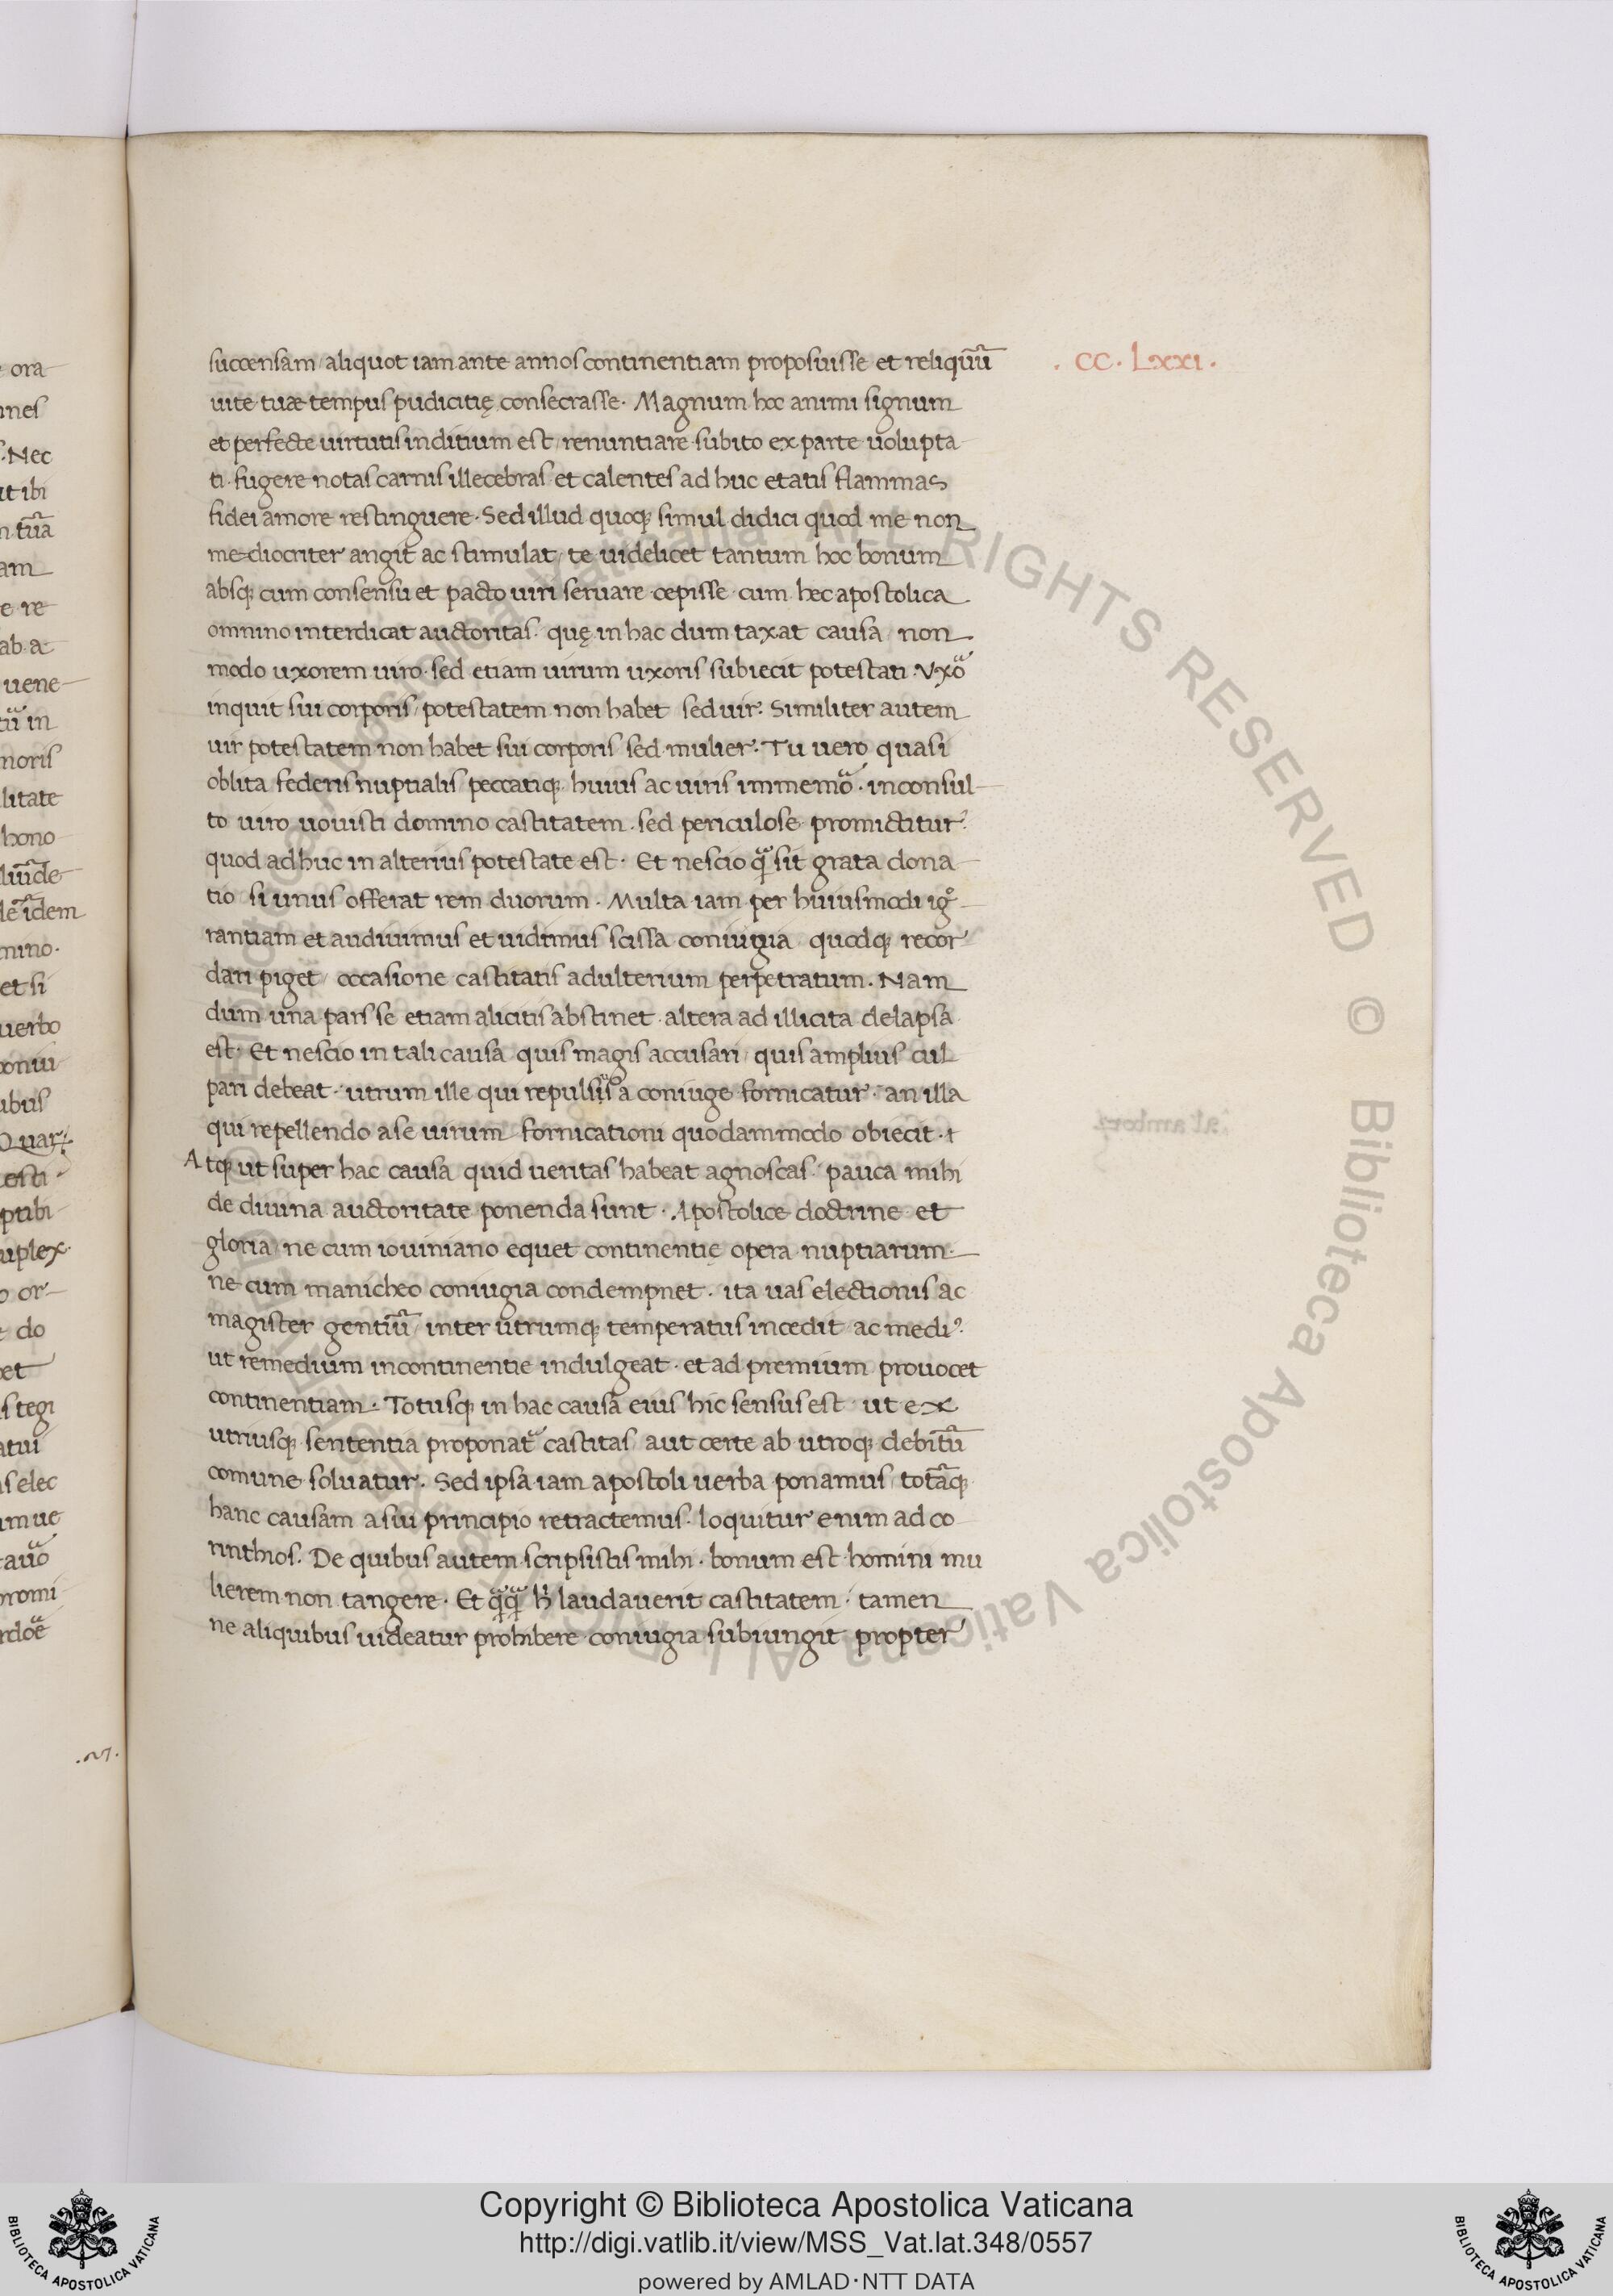 . CC . Lxxi .
succensam / aliquot iam ante annos continentiam proposuisse et reliquũ
uite tuæ tempus pudicitię consecrasse . Magnum hoc animi signum
et perfecte uirtutis inditium est / renuntiare subito ex parte uolupta
ti . fugere notas carnis illecebras et calentes ad huc etatis flammas
fidei amore restinguere . Sed illud quoq; simul didici quod me non
mediocriter angit ac stimulat / te uidelicet tantum hoc bonum
absq; cum consensu et pacto uiri seruare cepisse cum hec apostolica
omnino interdicat auctoritas . quę in hac dum taxat causa / non
modo uxorem uiro . sed etiam uirum uxoris subiecit potestati . Vxõ
inquit sui corporis / potestatem non habet sed uir . Similiter autem
uir potestatem non habet sui corporis sed mulier . Tu uero quasi
oblita federis nuptialis / peccatiq; huius ac uiris immemõ . inconsul
to uiro uouisti domino castitatem . sed periculose promictitur .
quod ad huc in alterius potestate est . Et nescio q̃ sit grata dona
tio si unus offerat rem duorum . Multa iam per huiusmodi igº
rantiam et audiuimus et uidimus scissa coniugia quodq; recor
dari piget / occasione castitatis adulterium perpetratum . Nam
dum una pars se etiam alicitis abstinet . altera ad illicita delapsa
est . Et nescio in tali causa quis magis accusari / quis amplius cul
pari debeat . utrum ille qui repulsus a coniuge fornicatur . an illa
qui repellendo a se uirum fornicationi quodammodo obiecit .
Atq; ut super hac causa quid ueritas habeat agnoscas . pauca mihi
de diuina auctoritate ponenda sunt . Apostolice doctrine et
gloria / ne cum iouiniano equet continentię opera nuptiarum .
ne cum manicheo coniugia condempnet . ita uas electionis ac
magister gentiũ / inter utrumq; temperatus incedit ac mediꝰ
ut remedium incontinentie indulgeat . et ad premium prouocet
continentiam . Totusq; in hac causa eius hic sensus est ut ex
utriusq; sententia proponat̃ castitas / aut certe ab utroq; debitũ
comune soluatur . Sed ipsa iam apostoli uerba ponamus / totãq;
hanc causam a sui principio retractemus . loquitur enim ad co
rinthios . De quibus autem scripsistis mihi . bonum est homini mu
lierem non tangere . Et q̃q̃ h̓ laudauerit castitatem . tamen
ne aliquibus uideatur prohibere coniugia subiungit propter
Copyright © Biblioteca Apostolica Vaticana
http://digi.vatlib.it/view/MSS_Vat.lat.348/0557
powered by AMLAD・NTT DATA
BIBLIOTECA APOSTOLICA VATICANA
BIBLIOTECA APOSTOLICA VATICANA